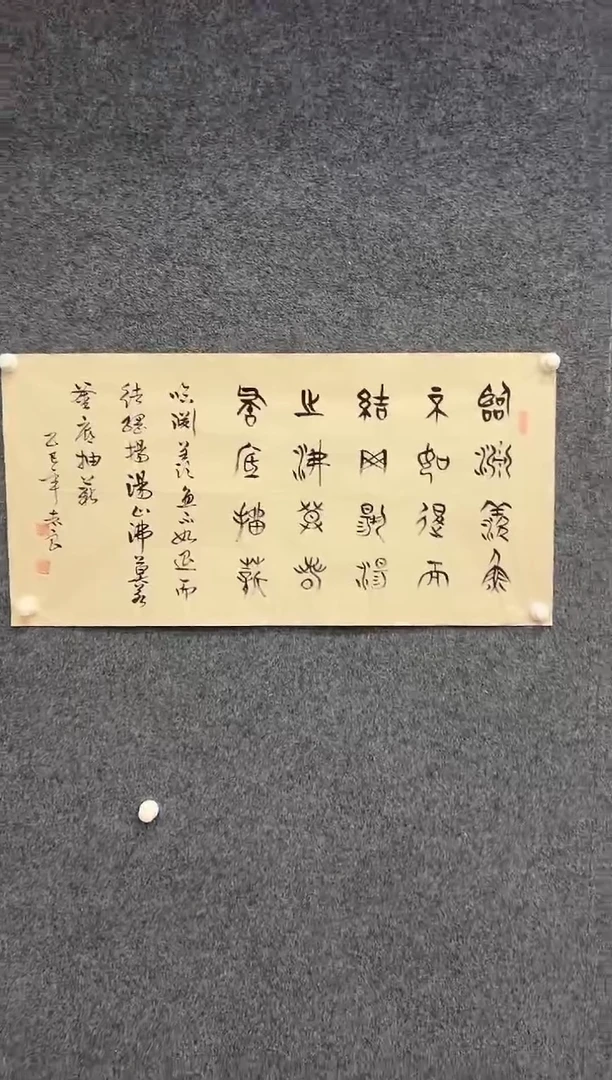 臨淵羨魚
不如退而
結网揚湯
止沸莫若
釜底抽薪
臨淵羨魚不如退而
結網揚湯止沸莫若
釜底抽薪
乙巳年